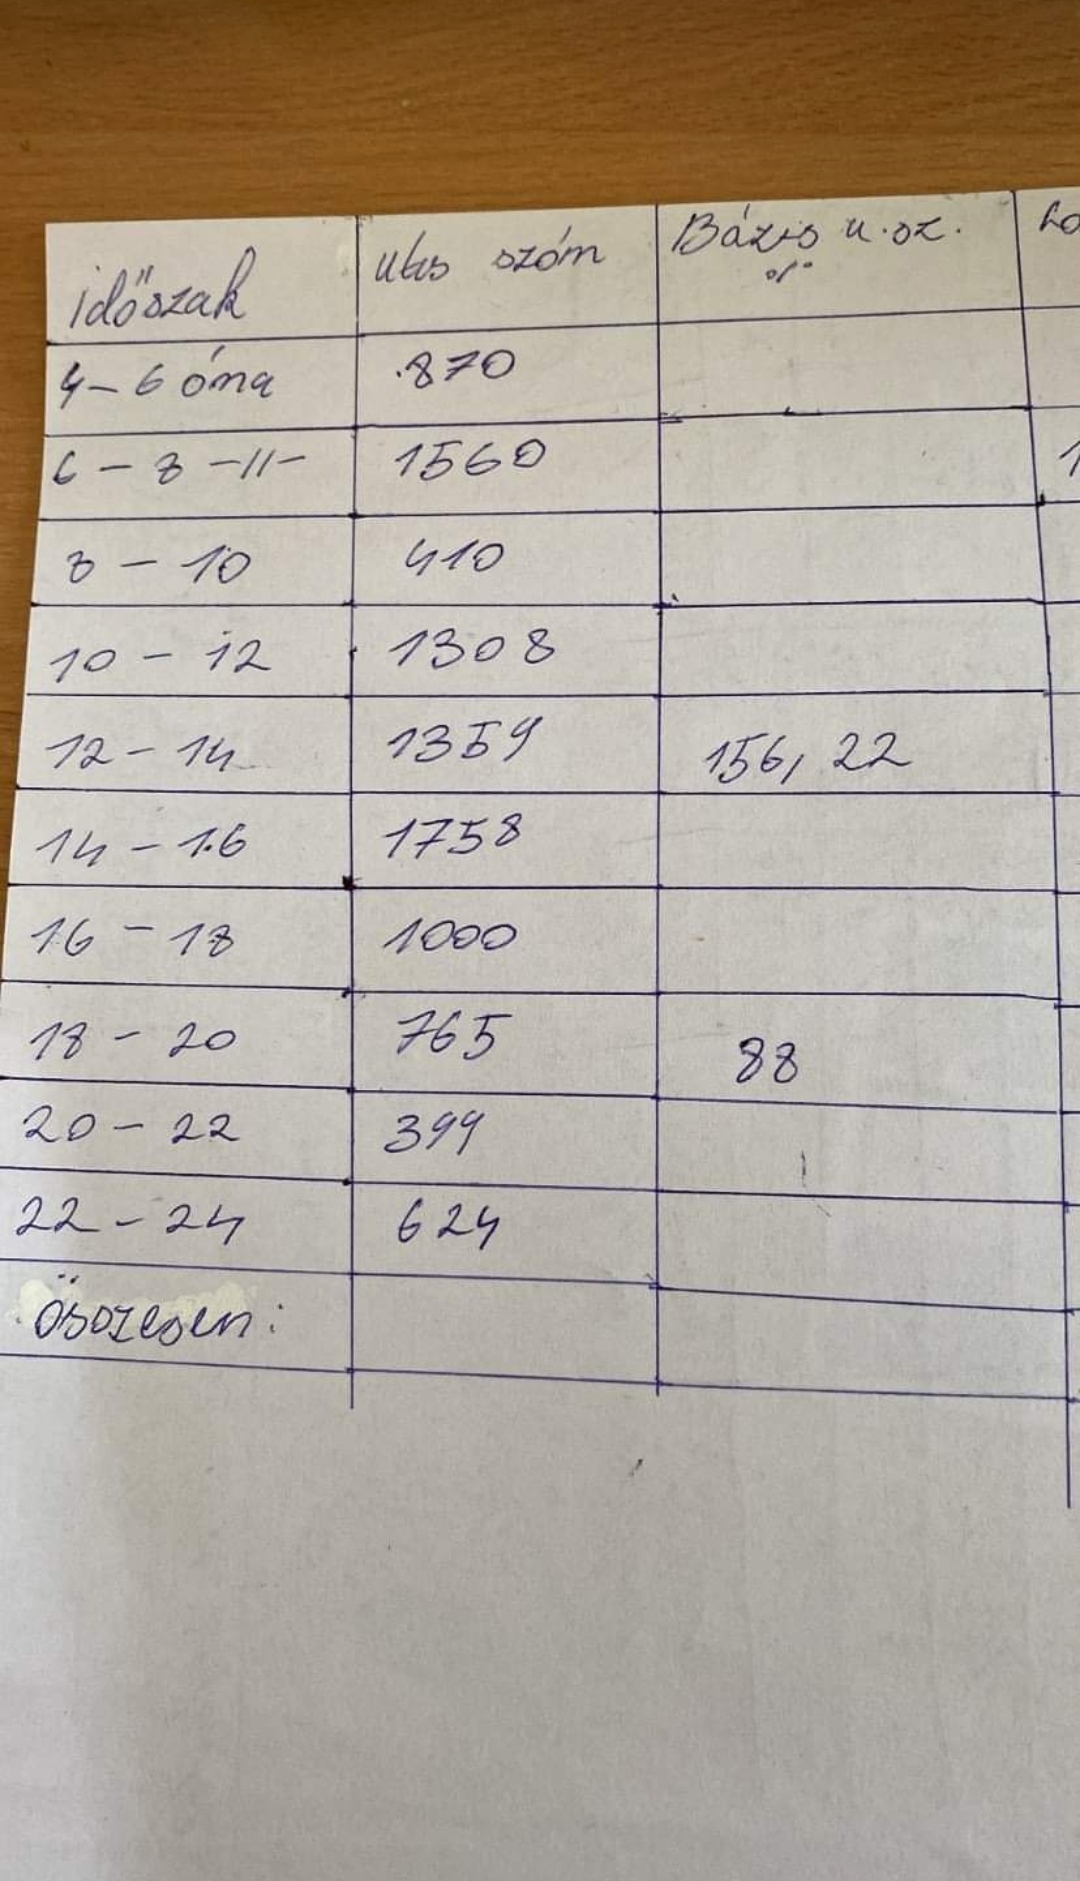 időszak utas szám Bázis u.sz. %
4 – 6 óra 870
6 – 8 –11– 1560
8 – 10 410
10 – 12 1308
12 – 14 1359 156,22
14 – 16 1758
16 – 18 1000
18 – 20 765 88
20 – 22 399
22 – 24 624
összesen: